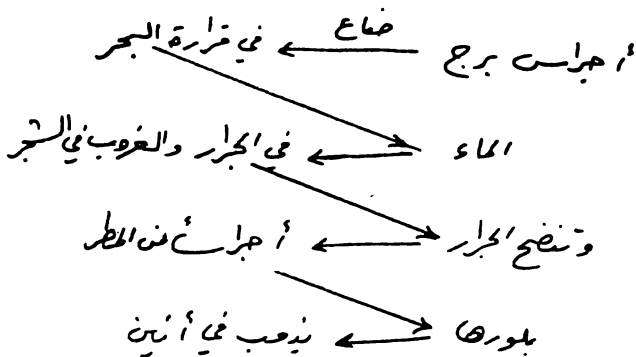 أجراس برج ضاع في قرارة البحر
الماء في الجرار والغروب في الشجر
وتنضح الجرار أجراساً من المطر
بلورها يذوب في أنين